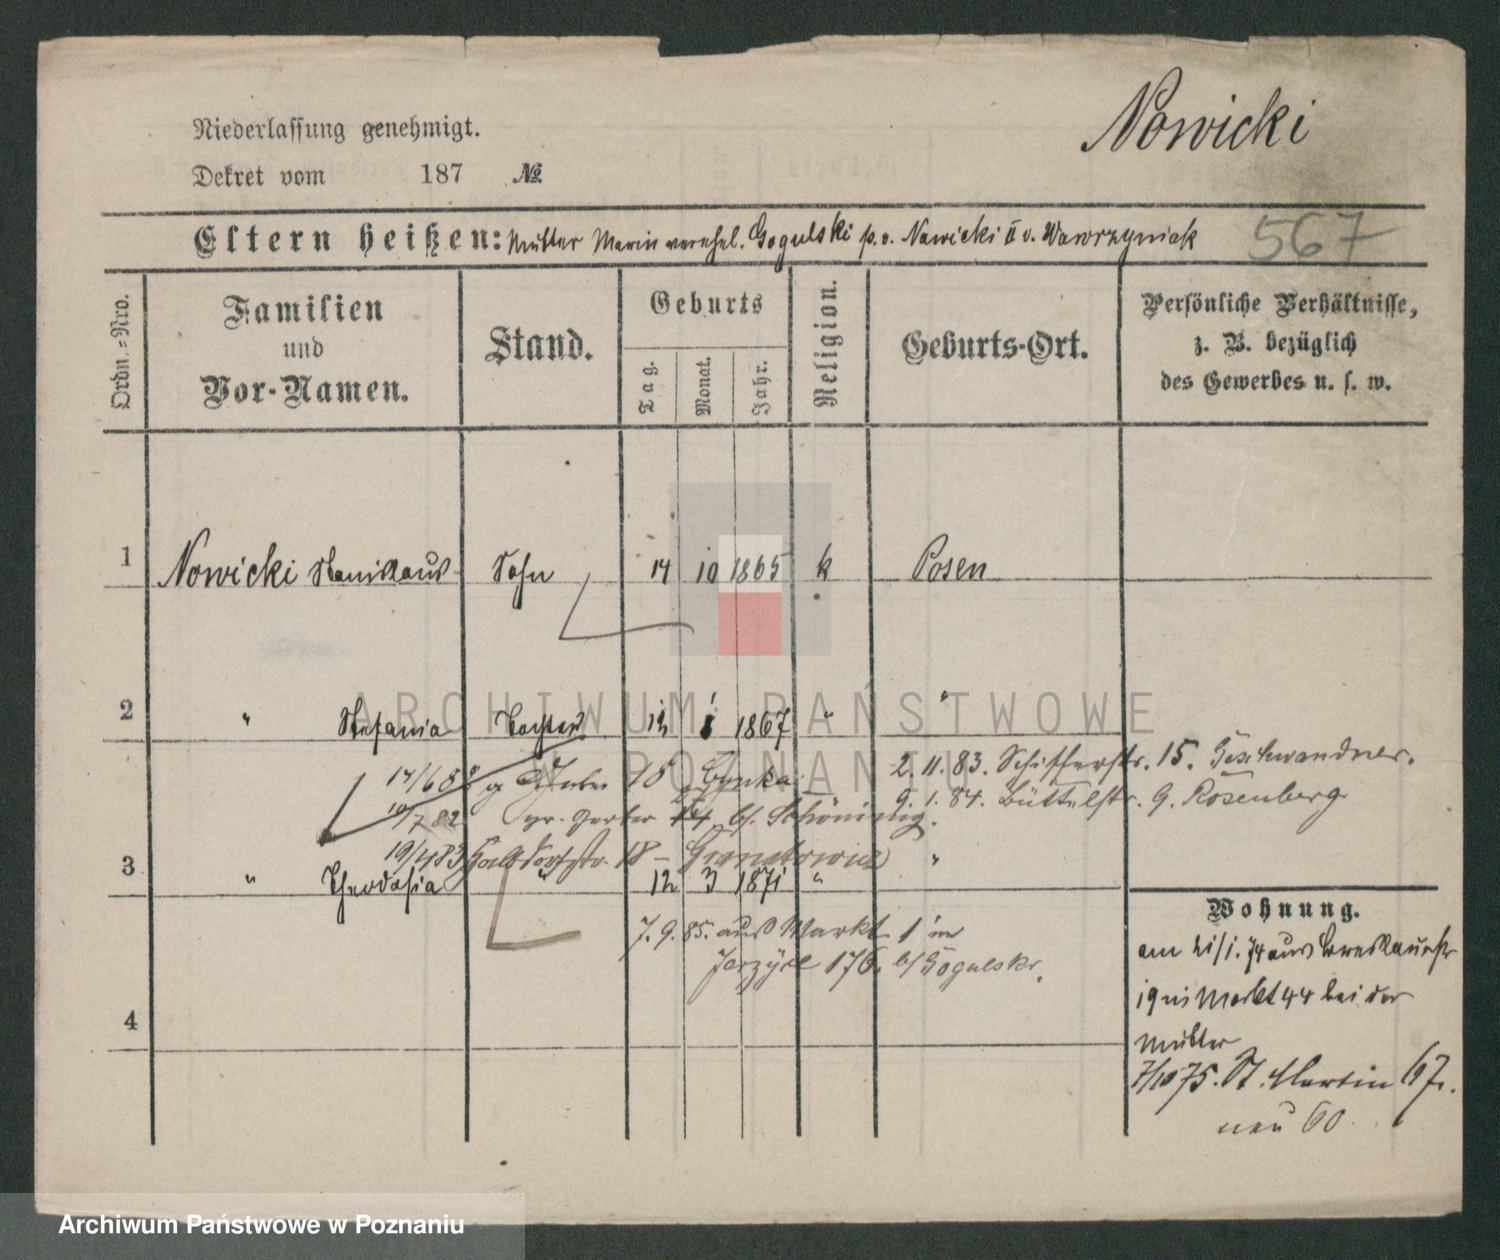 Nowicki
Niederlassung genehmigt.
Dekret vom 187 №
Eltern heißen: Mutter Marin verehel. Gogulski p. v. Nowicki II v. Wawrzyniak
567
Ordn.=Nro.
Familien und Vor-Namen.
Stand.
Geburts
Tag.
Monat.
Jahr.
Religion.
Geburts-Ort.
Persönliche Verhältnisse,
z. B. bezüglich
des Gewerbes u. s. w.
1 Nowicki Stanislaus Sohn 14 10 1865 k Posen
2 " Stefania Tochter 12 1 1867 " "
2. 11. 83. Schifferstr. 15. Geschwandner.
15
9. 1. 84. Büttelstr. 9. Rosenberg
10/7 82 gr. Gerber b/. Schöninig.
19/4 83 18 –
3 " Theodosia " 12 3 1871 " "
7. 9. 85. aus Markt 1 in
Jerzyce 176. b/ Gogulski.
4
Wohnung.
am 21/1. 74 aus Breslauerstr
19 in Markt 44 bei der
Mutter
7/10 75. St. Martin 67.
neu 60.
ARCHIWUM PAŃSTWOWE
W POZNANIU
Archiwum Państwowe w Poznaniu